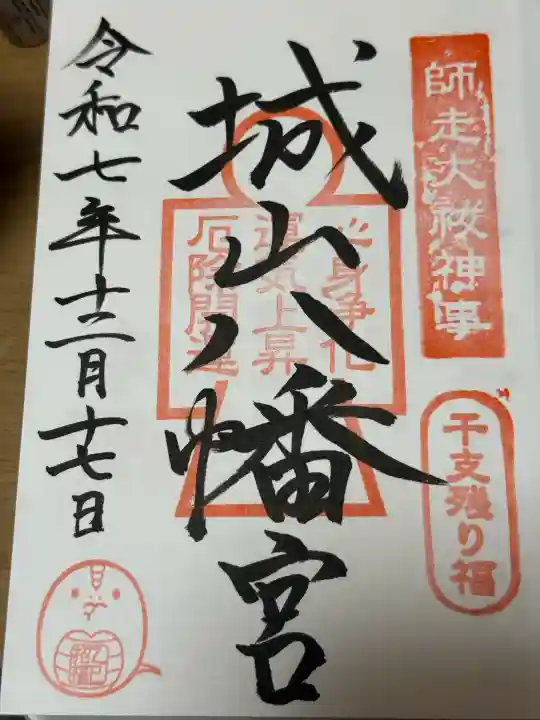 師走大祓神事
干支残り福
城山八幡宮
心身浄化
運気上昇
厄除開運
令和七年十二月十七日